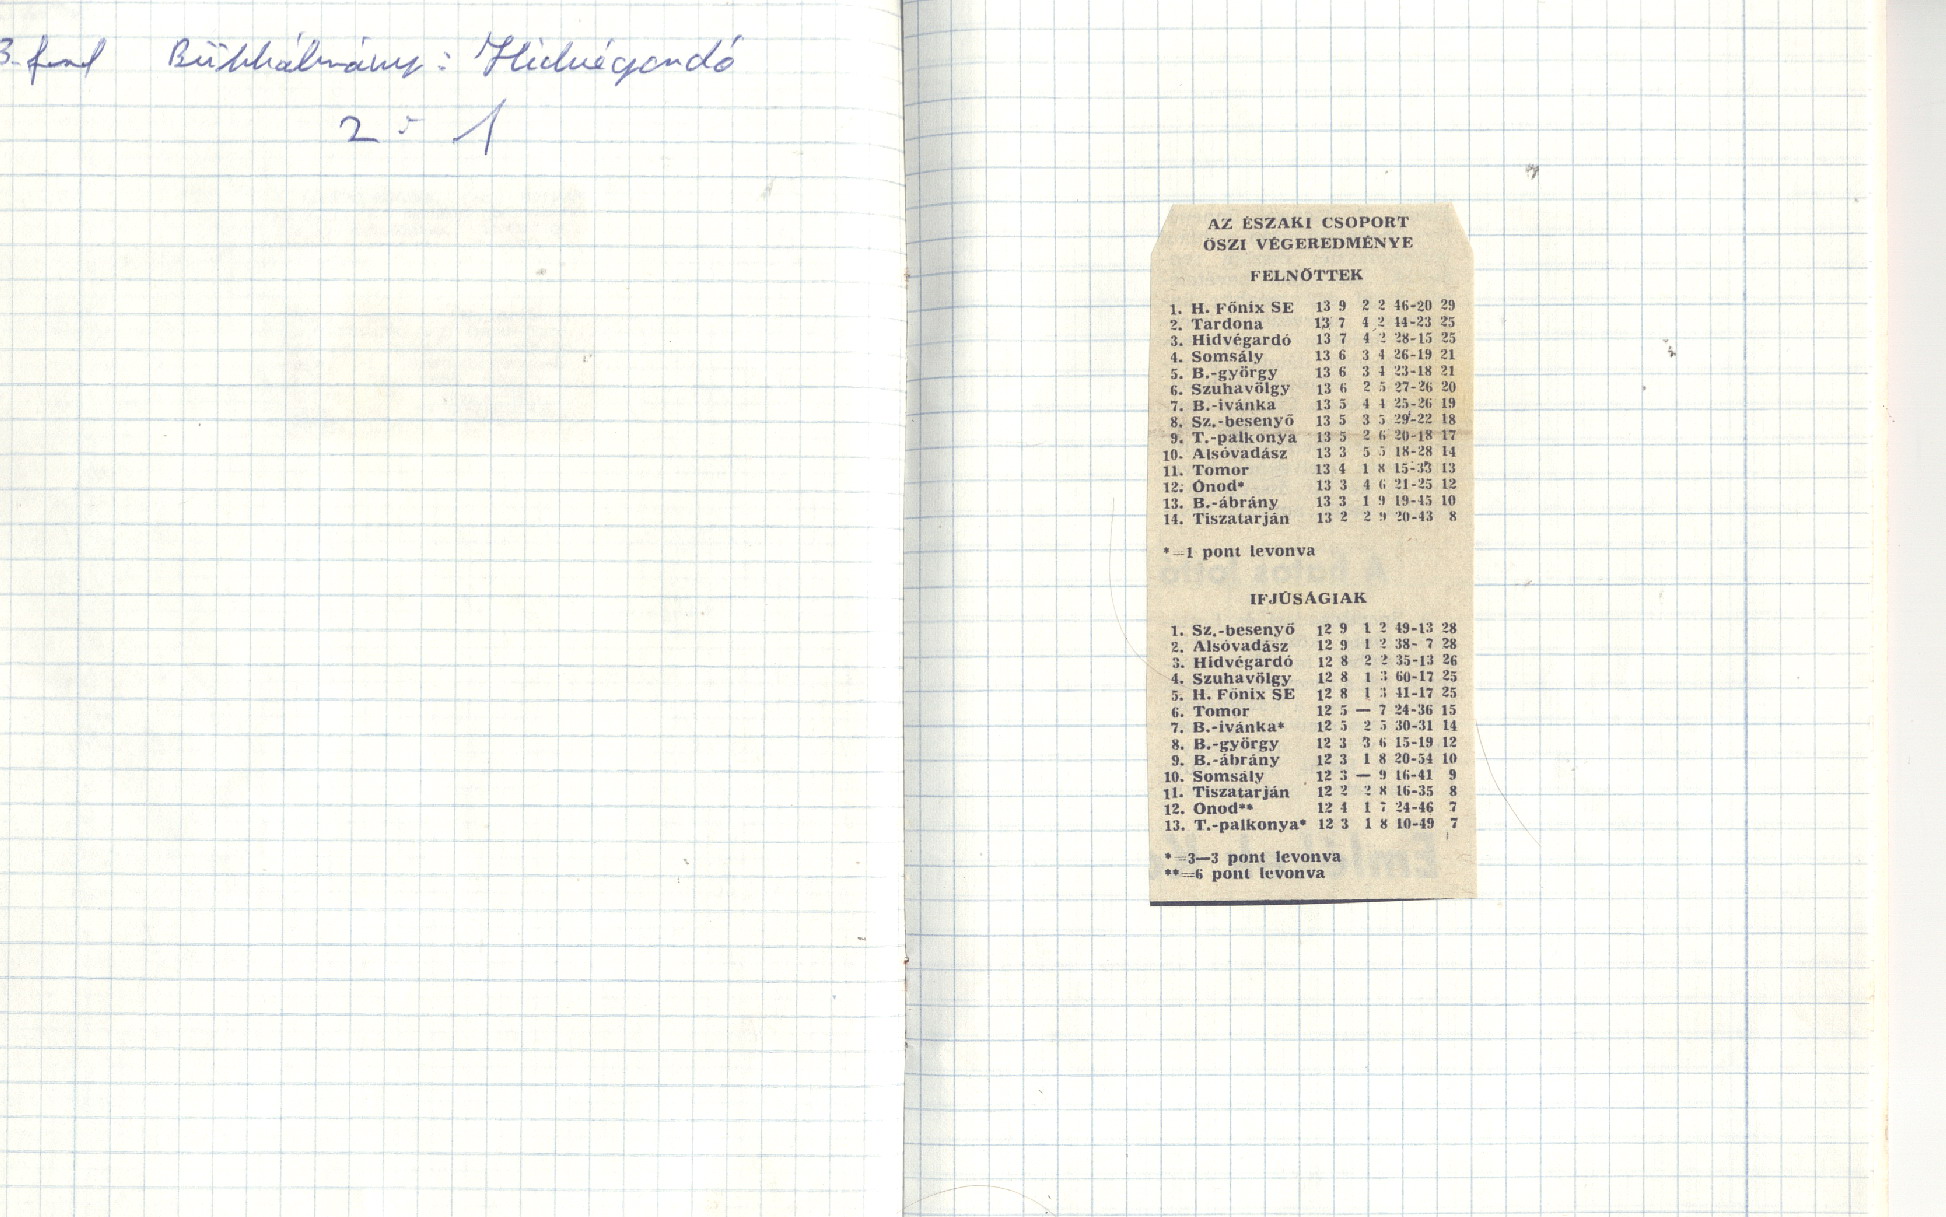 3. ford Bükkábrány : Hidvégardó
2 : 1
AZ ÉSZAKI CSOPORT
ŐSZI VÉGEREDMÉNYE
FELNŐTTEK
1. H. Főnix SE 13 9 2 2 46-20 29
2. Tardona 13 7 4 2 44-23 25
3. Hidvégardó 13 7 4 2 28-15 25
4. Somsály 13 6 3 4 26-19 21
5. B.-györgy 13 6 3 4 23-18 21
6. Szuhavölgy 13 6 2 5 27-26 20
7. B.-ivánka 13 5 4 4 25-26 19
8. Sz.-besenyő 13 5 3 5 29-22 18
9. T.-palkonya 13 5 2 6 20-18 17
10. Alsóvadász 13 3 5 5 18-28 14
11. Tomor 13 4 1 8 15-33 13
12. Ónod* 13 3 4 6 21-25 12
13. B.-ábrány 13 3 1 9 19-45 10
14. Tiszatarján 13 2 2 9 20-43 8
*=1 pont levonva
IFJÚSÁGIAK
1. Sz.-besenyő 12 9 1 2 49-13 28
2. Alsóvadász 12 9 1 2 38- 7 28
3. Hidvégardó 12 8 2 2 35-13 26
4. Szuhavölgy 12 8 1 3 60-17 25
5. H. Főnix SE 12 8 1 3 41-17 25
6. Tomor 12 5 — 7 24-36 15
7. B.-ivánka* 12 5 2 5 30-31 14
8. B.-györgy 12 3 3 6 15-19 12
9. B.-ábrány 12 3 1 8 20-54 10
10. Somsály 12 3 — 9 16-41 9
11. Tiszatarján 12 2 2 8 16-35 8
12. Ónod** 12 4 1 7 24-46 7
13. T.-palkonya* 12 3 1 8 10-49 7
*=3—3 pont levonva
**=6 pont levonva